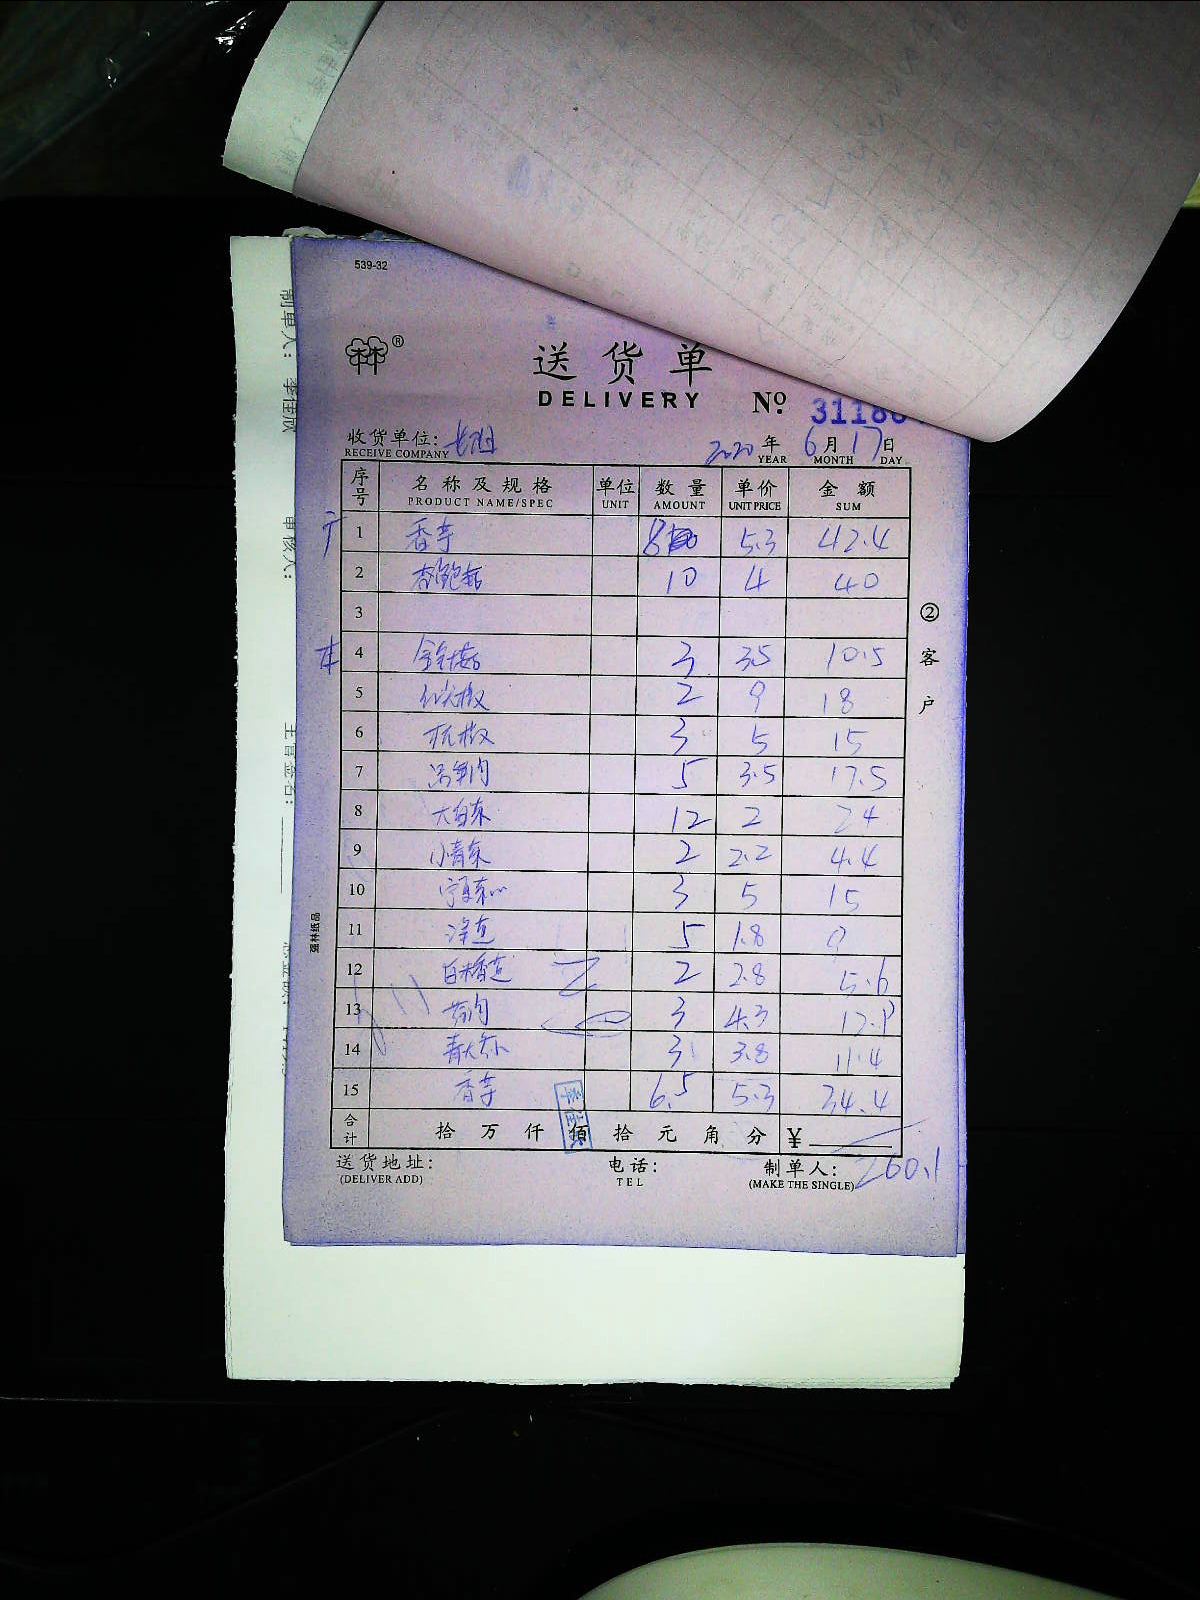 539-32
林®
送货单
DELIVERY № 31186
收货单位: RECEIVE COMPANY 2020年 YEAR 6月 MONTH 17日 DAY
序号 名称及规格 PRODUCT NAME/SPEC 单位 UNIT 数量 AMOUNT 单价 UNIT PRICE 金额 SUM
1 香芋 8 5.3 42.4
2 杏鲍菇 10 4 40
3
4 金针菇 3 3.5 10.5
5 红尖椒 2 9 18
6 杭椒 3 5 15
7 3.5 17.5 5
8 大白菜 12 2 24
9 小青菜 2 2.2 4.4
10 3 5 15
11 5 1.8 9
12 2 2.8 5.6
13 3 4.3 12.9
14 3 3.8 11.4
15 香芋 6.5 5.3 34.4
合计 拾万仟佰拾元角分 ¥
260.1
送货地址: (DELIVER ADD) 电话: TEL 制单人: (MAKE THE SINGLE)
②客户
强林纸品
制单人: 李佳欣
审核人:
主管签名: